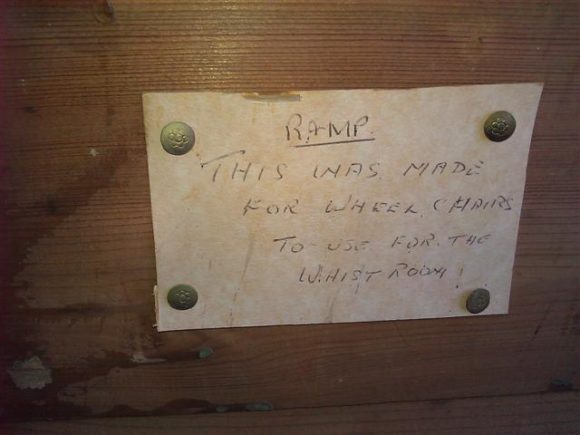 RAMP.
THIS WAS MADE
FOR WHEEL CHAIRS
TO USE FOR THE
WHIST ROOM!